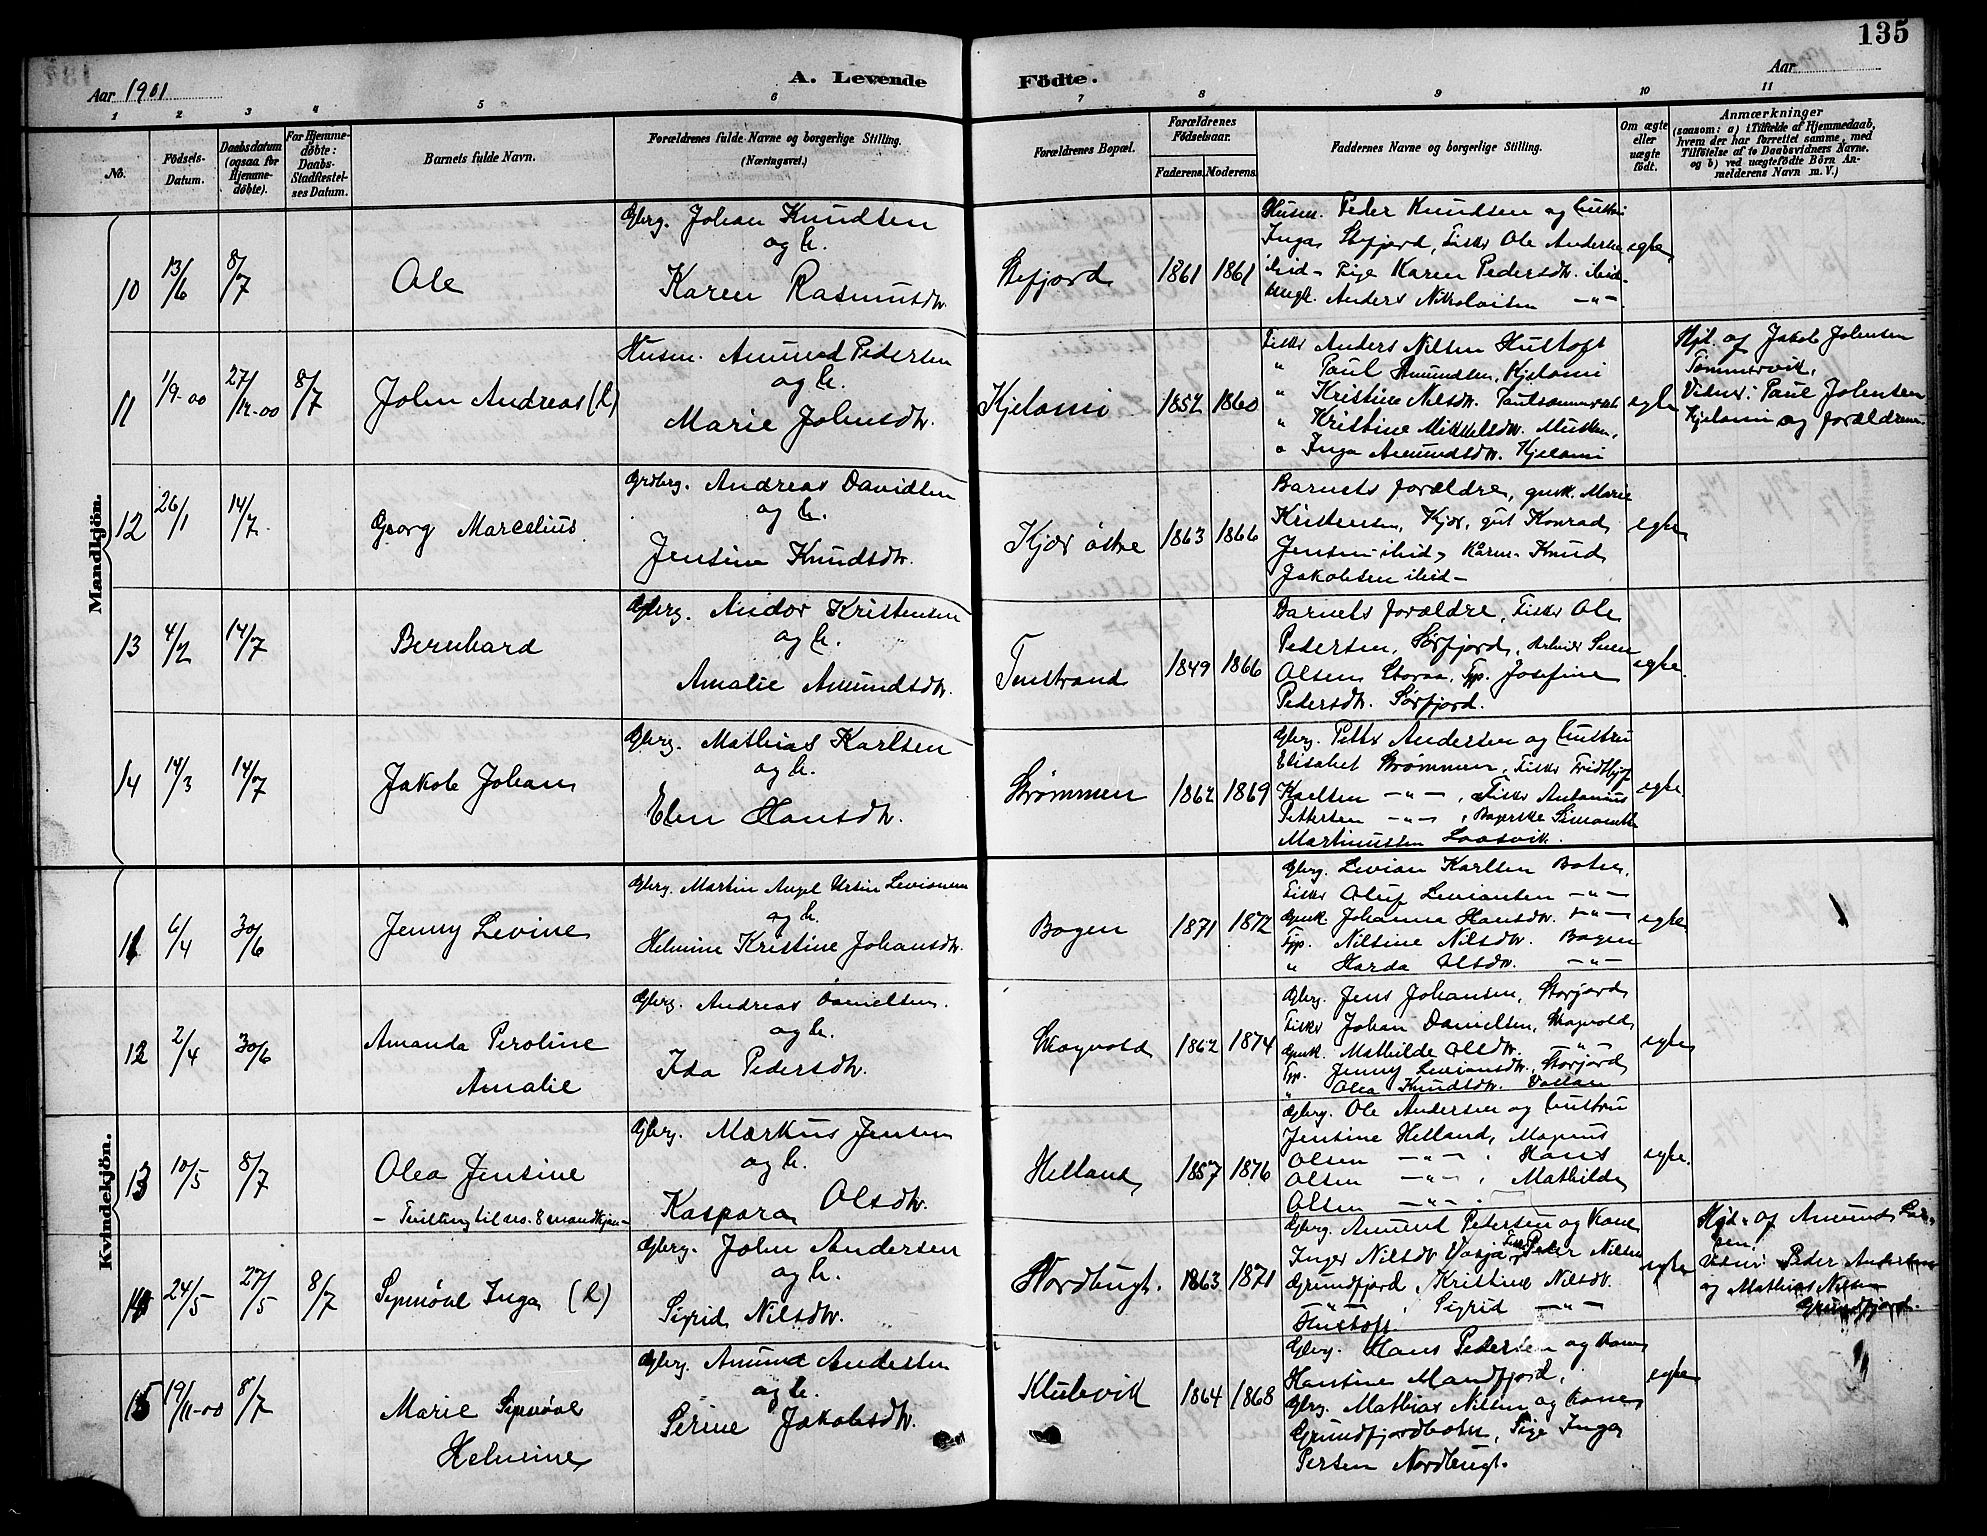 135
Aar 1901
A. Levende Fødte.
Aar
1 2 3 4 5 6 7 8 9 10 11
No.
Fødsels-Datum.
Daabsdatum (ogsaa for Hjemmedøbte).
For Hjemmedøbte: Daabs-Stadfestelses Datum.
Barnets fulde Navn.
Forældrenes fulde Navne og borgerlige Stilling. (Næringsvei.)
Forældrenes Bopæl.
Forældrenes Fødselsaar.
Faderens. Moderens.
Faddernes Navne og borgerlige Stilling.
Om ægte eller uægte født.
Anmærkninger
(saasom: a) i Tilfælde af Hjemmedaab, hvem der har forrettet samme, med Tilføtelse af to Daabsvidners Navne. og b) ved uægtefødte Børn Anmelderens Navn m. V.)
Mandkjön.
10 13/6 8/7 Ole
Gbrg. Johan Knudsen
og h.
Karen Rasmusdtr.
Stefjord 1861 1861
Husm. Peder Knudsen og hustru
Inga, Stefjord, Fisker Ole Andersen
ibid - Pige Karen Pedersdtr. ibid-
Ungk. Anders Nikolaisen -"-
egte
11 1/9-00 27/12-00 8/7 John Andreas (h)
Husm. Amund Pedersen
og h.
Marie Johnsdtr.
Kjelami 1852 1860
Fisker Anders Nilsen Hustoft
" Paul Amundsen, Kjelami
" Kristine Nilsdtr.
" Kristine Mikkelsdtr. Musken,
" Inga Amundsdtr. Kjelami
egte
Hjd. af Jakob Johnsen
Tømmervik,
Vidner: Paul Johnsen
Kjelami og forældrene.
12 26/1 14/7 Georg Marcelius
Grdbrg. Andreas Davidsen
og h.
Jensine Knudsdtr.
Kjær østre 1863 1866
Barnets forældre, gusk. Marie
Kristensen, Kjær, gut Konrad
Jensen ibid, Kårm. Knud
Jakobsen ibid-
egte
13 4/2 14/7 Bernhard
Gbrg. Andor Kristensen
og h.
Amalie Amundsdtr.
Tenstrand 1849 1866
Barnets forældre, Fisker Ole
Pedersen, Sørfjord,
Olsen Storaa, Tjp. Josefine
Pedersdtr. Sørfjord.
egte
14 14/3 14/7 Jakob Johan
Gbrg. Mathias Karlsen
og h.
Elen Hansdtr.
Strømmen 1862 1869
Gbrg. Petter Andersen og hustru
Elisabet Strømmen, Fisker Fridthjof
Karlsen -"-, Fisker Antonius
Pettersen -"-,
Martinussen Laasvik.
egte
Kvindekjön.
11 6/4 30/6 Jenny Levine
Gbrg. Martin Angel Ursin Levionsen
og h.
Helmine Kristine Johansdtr.
Bogen 1871 1872
Gbrg. Levian Karlsen Boten,
Fisker Oluf Leviansen -"-
Gusk. Johanna Hansdtr. -"-
Tjp. Nilsine Nilsdtr. Bogen
" Harda Olsdtr. -"-
egte
12 2/4 30/6 Amanda Peroline
Amalie
Gbrg. Andreas Danielsen
og h.
Ida Pedersdtr.
Skogvold 1862 1874
Gbrg. Jens Johansen, Storjord
Fisker Johan Danielsen, Skogvold
Gusk. Mathilde Olsdtr. -"-
Tjp. Jenny Leviansdtr., Storjord
" Olea Knudsdtr.
egte
13 10/5 8/7 Olea Jensine
- Tvilling til no. 8 mandkjøn -
Gbrg. Markus Jensen
og h.
Kaspara Olsdtr.
Helland 1857 1876
Gbrg. Ole Andersen og hustru
Jensine Helland, Magnus
Olsen -"-, Hans
Olsen -"-, Mathilde
Olsen -"-.
egte.
14 24/5 27/5 8/7 Synnøve Inga (h)
Gbrg. John Andersen
og h.
Sigrid Nilsdtr.
Nordbugt. 1863 1871
Gbrg. Amund Petersen og Kone
Inger Nilsdtr Vasja, Fisker Peder Nilsen
Grundfjord, Kristine Nilsdtr.
-"-, Sigrid -"-
Hustoft
egte
Hjd. af Amund
Vidner Peder Andersen
og Mathias Nilsen
Grundfjord.
15 19/11-00 8/7 Marie Synnøve
Helmine
Gbrg. Amund Andersen
og h.
Serine Jakobsdtr.
Klubvik 1864 1868
Gbrg. Hans Pedersen og kone
Hansine Mandfjord,
Gbrg. Mathias Nilsen og kone
Grundfjordbotn, Pige Inga
Persen Nordbugt.
egte